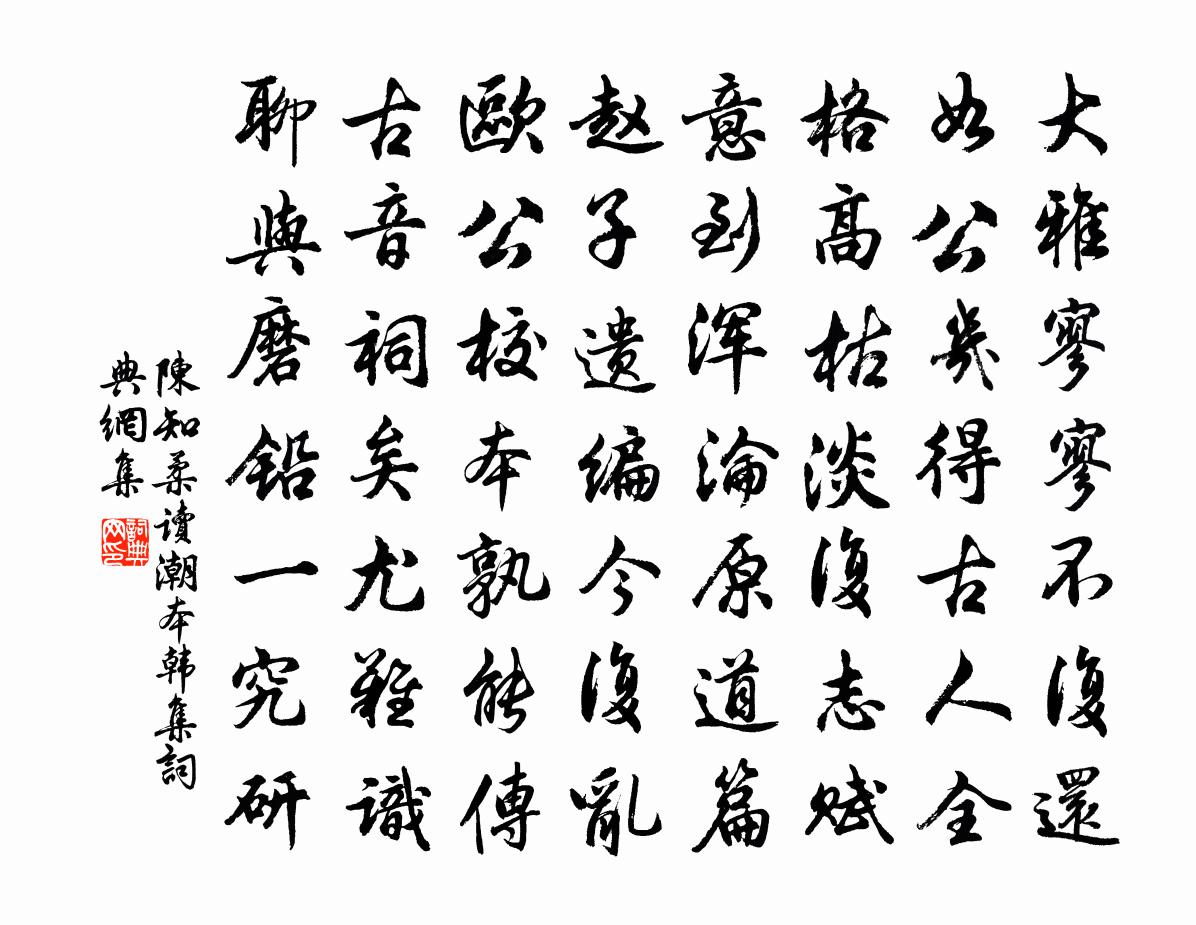 大雅寥寥不復還
如公幾得古人全
格高枯淡復志賦
意到浑淪原道篇
赵子遗编今復亂
歐公校本孰能傳
古音祠矣尤難識
聊與磨鉛一究研
陳知柔讀潮本韩集詞
典網集
詞典网印